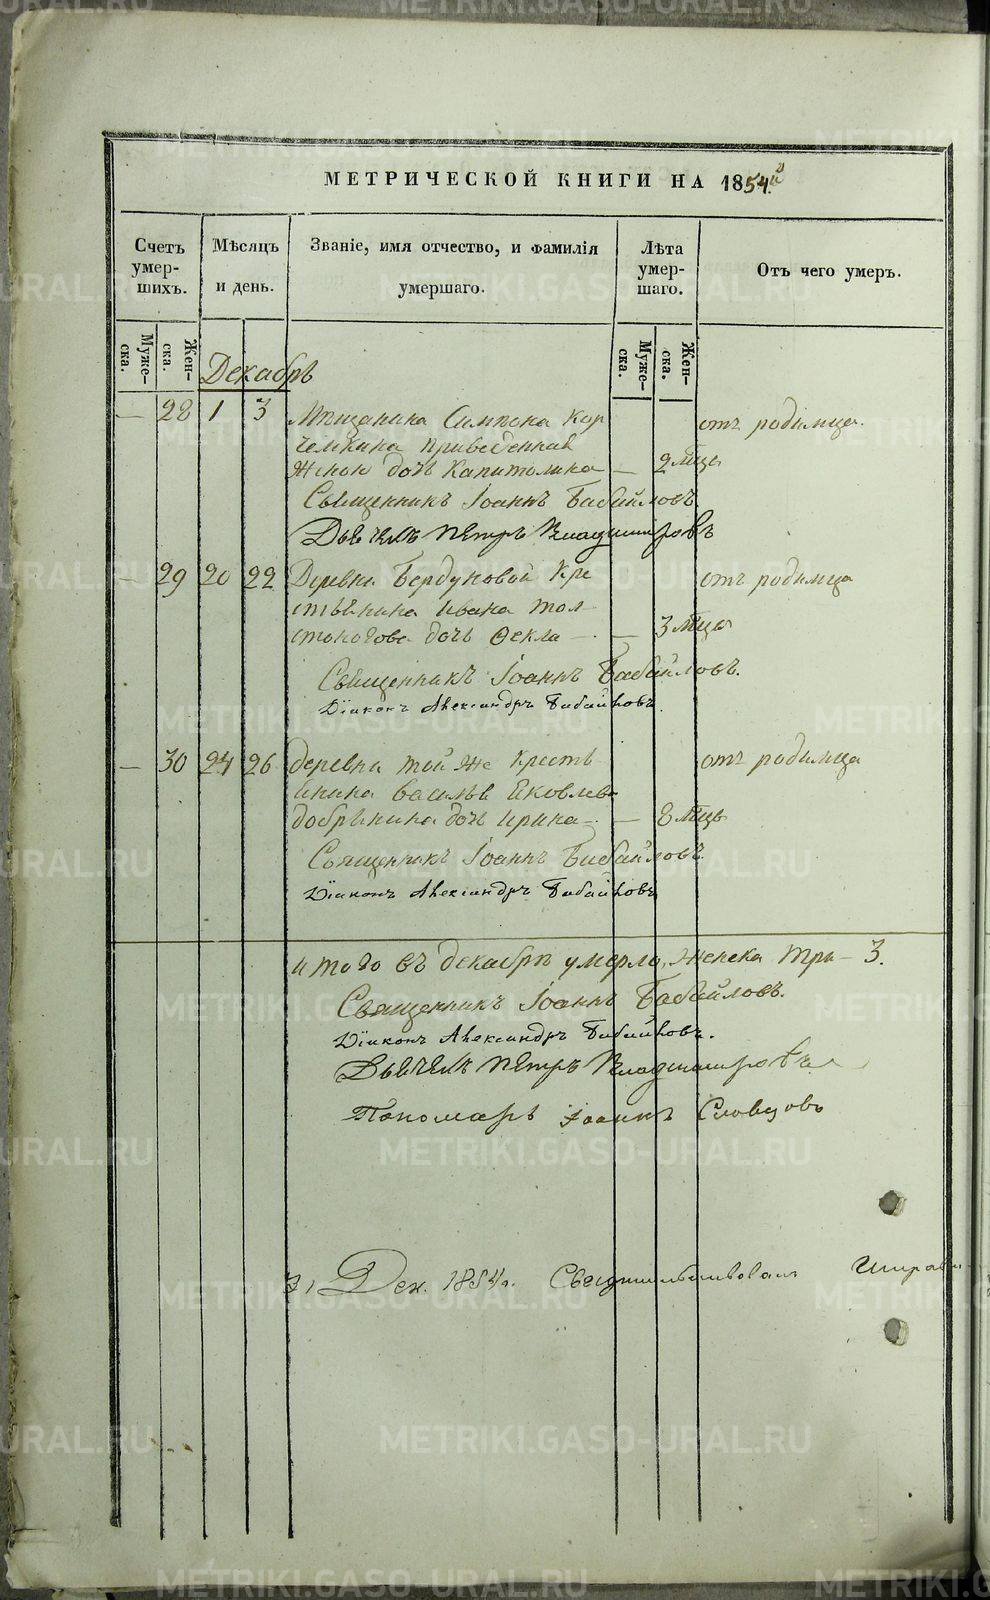 МЕТРИЧЕСКОЙ КНИГИ НА 1854й
Счетъ умер-шихъ.
Мѣсяцъ и день.
Званіе, имя отчество, и фамилія умершаго.
Лѣта умер-шаго.
Отъ чего умеръ.
Муже-ска.
Жен-ска.
Муже-ска.
Жен-ска.
Декабрь
— 28 1 3 Мѣщанина Симиона Кор отъ родимца.
челкина приведенная
женою дочь Капитолина — 2 мца
Священникъ Іоаннъ Бабайловъ.
Дьячекъ Петръ Владимировъ
— 29 20 22 Деревни Бердуновой Кре отъ родимца
стьянина Ивана Тол
стоногова дочь Фекла — 3 мца
Священникъ Іоаннъ Бабайловъ.
Діаконъ Александръ Бабайловъ.
— 30 24 26 деревни той же кресть отъ родимца
янина Василья Яковлева
добрынина дочь Ирина — 8 мцъ
Священникъ Іоаннъ Бабайловъ.
Діаконъ Александръ Бабайловъ
итого въ декабрѣ умерло, женска три — 3.
Священникъ Іоаннъ Бабайловъ.
Діаконъ Александръ Бабайловъ.
Дьячекъ Петръ Владимировъ
Пономарь Іоаннъ Словцовъ
31 Дек. 1854 г. Свидѣтельствовалъ
METRIKI.GASO-URAL.RU